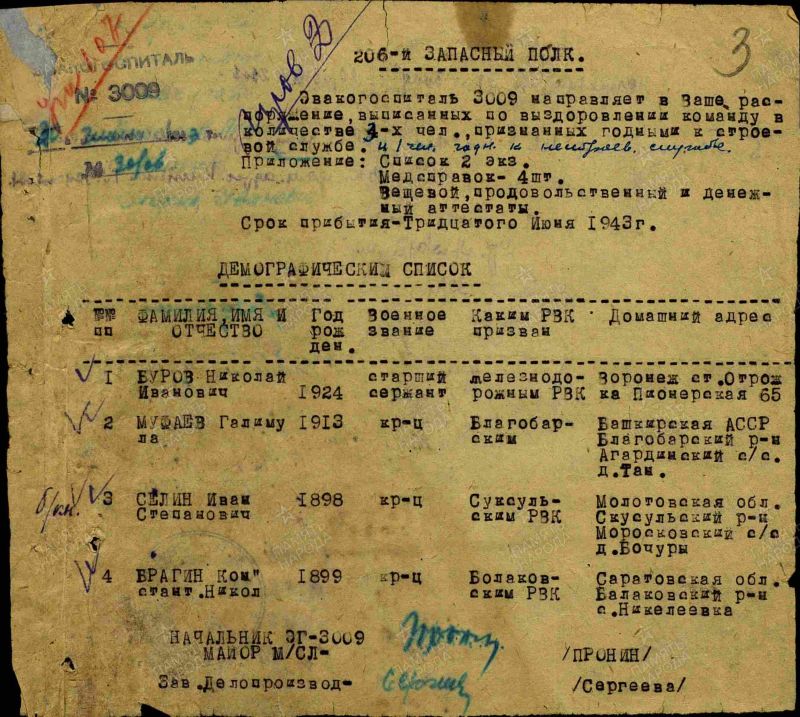 3
206-й ЗАПАСНЫЙ ПОЛК.
ЭВАКОГОСПИТАЛЬ
№ 3009
Эвакогоспиталь 3009 направляет в Ваше рас-
поряжение, выписанных по выздоровлении команду в
количестве 3-х чел., признанных годными к строе-
вой службе. и 1 чел. годн. к нестроев. службе.
Приложение: Список 2 экз.
Медсправок- 4шт.
Вещевой,продовольственный и денеж-
ный аттестаты.
Срок прибытия-Тридцатого Июня 1943г.
ДЕМОГРАФИЧЕСКИЙ СПИСОК
№№ пп ФАМИЛИЯ,ИМЯ И ОТЧЕСТВО Год рож ден. Военное звание Каким РВК призван Домашний адрес
1 БУРОВ Николай старший железнодо- Воронеж ст.Отрож
Иванович 1924 сержант рожным РВК ка Пионерская 65
2 МУФАЕВ Галиму 1913 кр-ц Благобар- Башкирская АССР
ла ским Благобарский р-н
Агардинский с/с.
д.Тан.
3 СЕЛИН Иван 1898 кр-ц Суксуль- Молотовская обл.
Степанович ским РВК Скусульский р-н
Моросковский с/с
д.Бочуры
4 БРАГИН Кон"1899 кр-ц Болаков- Саратовская обл.
стант.Никол ским РВК Балаковский р-н
с.Никелеевка
НАЧАЛЬНИК ЭГ-3009
МАЙОР М/СЛ- /ПРОНИН/
Зав.Делопроизвод- /Сергеева/